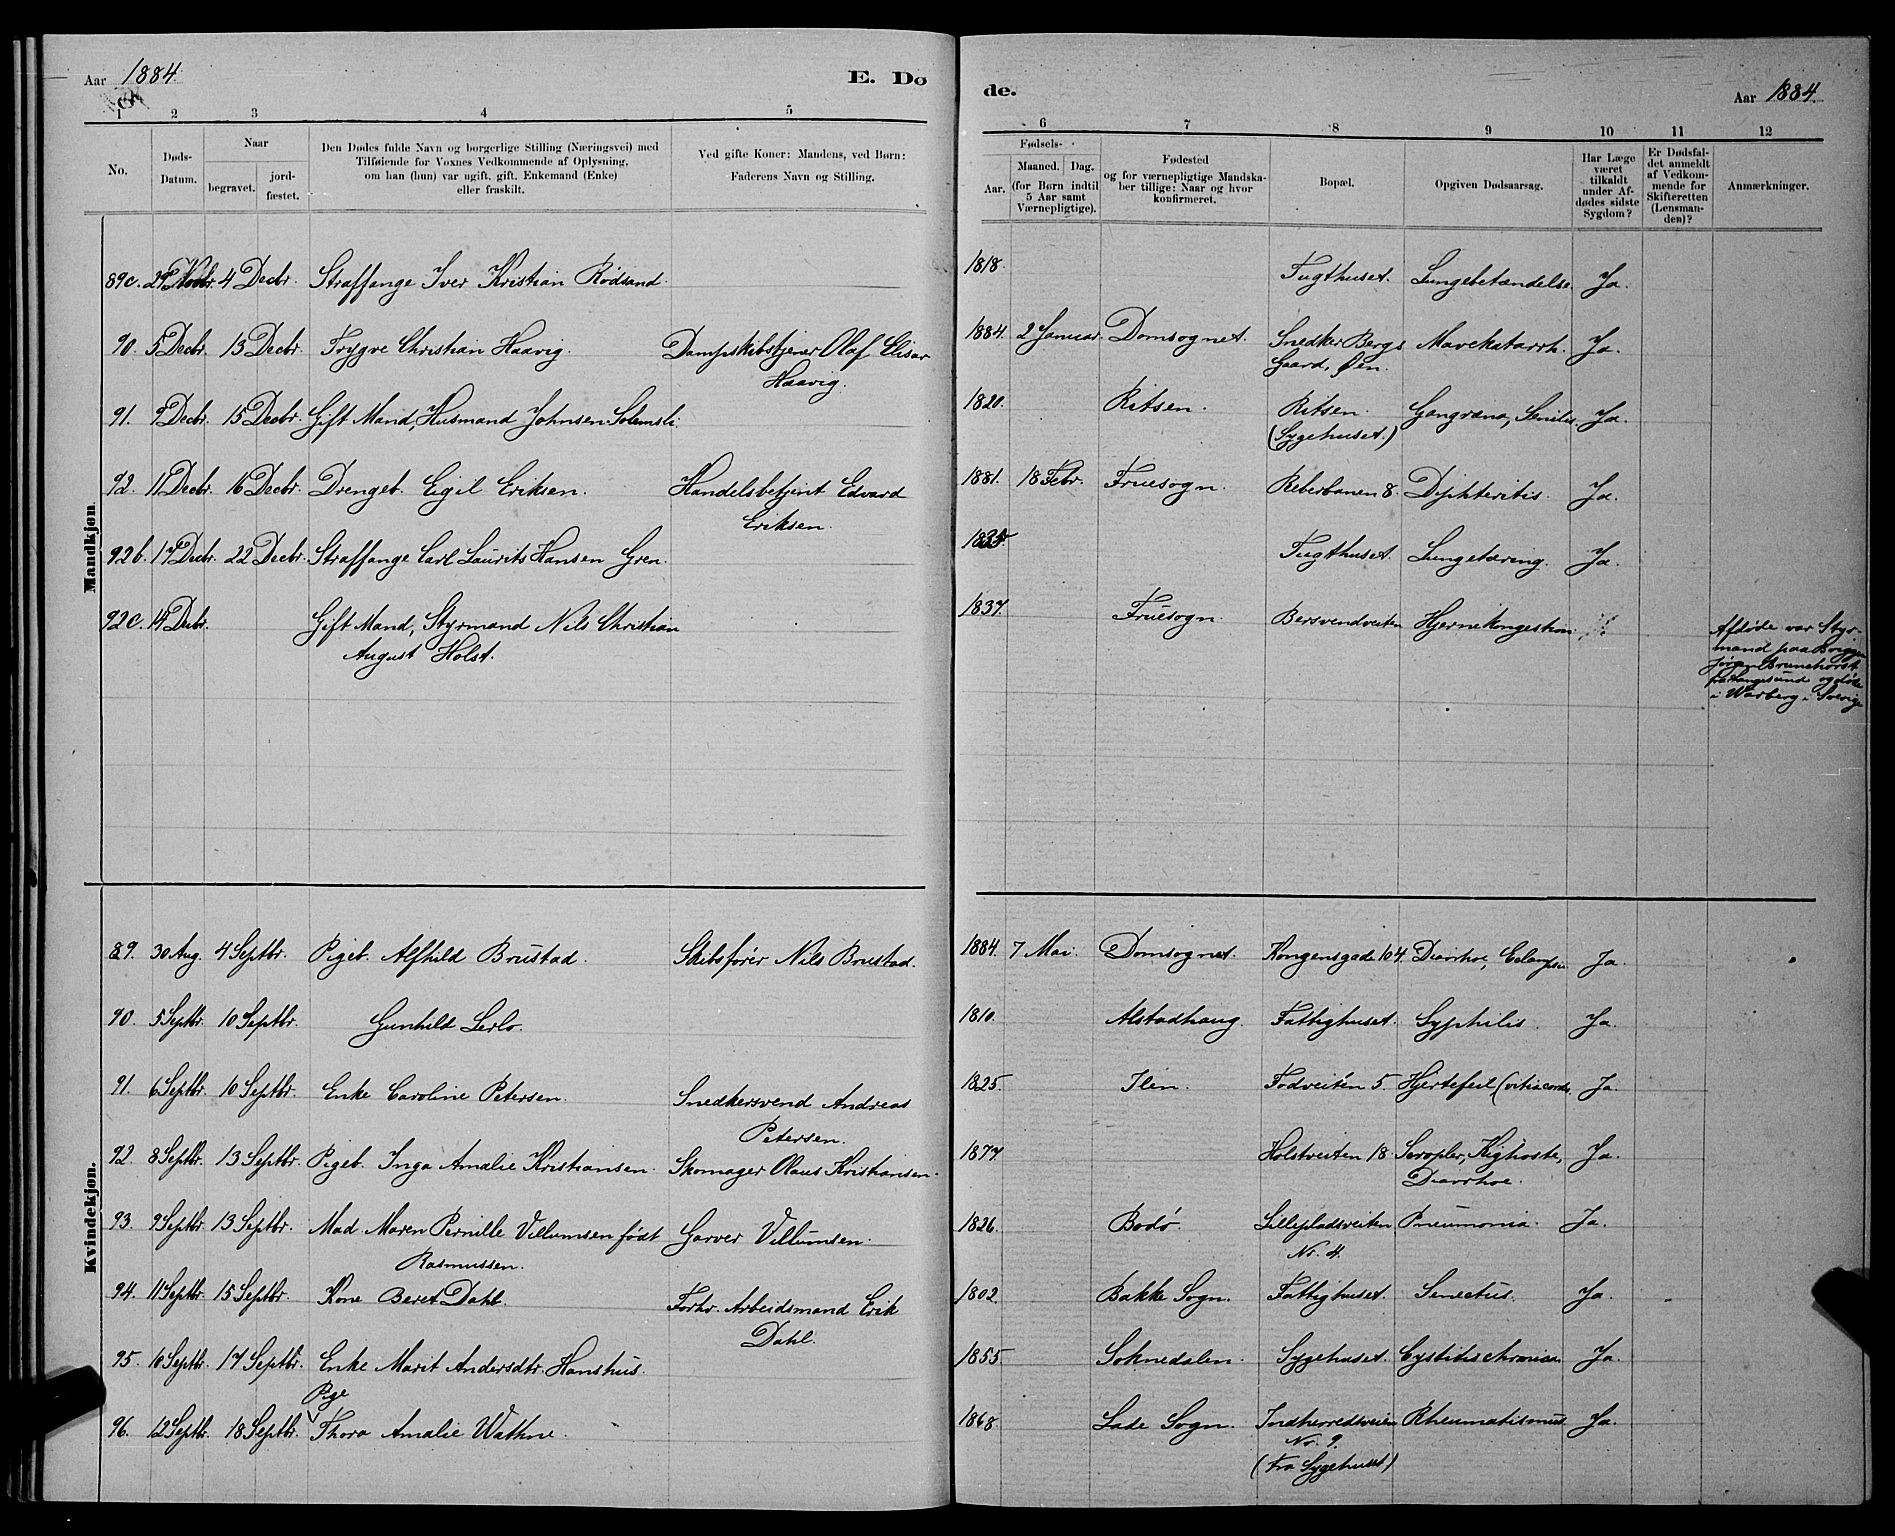 Aar 1884
E. Dø
1 2 3 4 5
No.
Døds-Datum.
Naar
begravet.
jord-fæstet.
Den Dødes fulde Navn og borgerlige Stilling (Næringsvei) med
Tilføiende for Voxnes Vedkommende af Oplysning,
om han (hun) var ugift, gift, Enkemand (Enke)
eller fraskilt.
Ved gifte Koner: Mandens, ved Børn:
Faderens Navn og Stilling.
Mandkjøn.
89c. 29 Novbr. 4 Decbr. Straffange Iver Kristian Rødsand
90. 5 Decbr. 13 Decbr. Trygve Christian Haavig. Dampskibstjener Olaf Elisar
Haavig.
91. 9 Decbr. 15 Decbr. Gift Mand, Husmand Johnsen Solemsli
92. 11 Decbr. 16 Decbr. Drengeb. Eigil Eriksen. Handelsbetjent Edvard
Eriksen.
92b. 17 Decbr. 22 Decbr. Straffange Carl Laurits Hansen Gren.
92c. 14 Decbr. Gift Mand, Styrmand Nils Christian
August Holst.
Kvindekjøn.
89. 30 Aug. 4 Septbr. Pigeb. Alfhild Brustad. Skibsfører Nils Brustad.
90. 5 Septbr. 10 Septbr. Gunhild Lerlo.
91. 6 Septbr. 10 Septbr. Enke Caroline Petersen. Snedkersvend Andreas
Petersen.
92. 8 Septbr. 13 Septbr. Pigeb. Inga Amalie Kristiansen. Skomager Olaus Kristiansen.
93. 9 Septbr. 13 Septbr. Mad Maren Pernille Villumsen født Garver Villumsen.
Rasmussen.
94. 11 Septbr. 15 Septbr. Kone Beret Dahl. Forhv. Arbeidsmand Erik
Dahl.
95. 10 Septbr. 17 Septbr. Enke Marit Andersdtr. Hanshus.
Pige
96. 12 Septbr. 18 Septbr. Thora Amalie Wathne.
de.
Aar 1884.
6 7 8 9 10 11 12
Fødsels-
Aar.
Maaned. Dag.
(for Børn indtil
5 Aar samt
Værnepligtige).
Fødested
og for værnepligtige Mandska-
ber tillige: Naar og hvor
konfirmeret.
Bopæl.
Opgiven Dødsaarsag.
Har Læge
været
tilkaldt
under Af-
dødes sidste
Sygdom?
Er Dødsfal-
det anmeldt
af Vedkom-
mende for
Skifteretten
(Lensman-
den)?
Anmærkninger.
1818. Tugthuset. Lungebetændelse Ja.
1884. 2 Januar. Domsognet. Snedker Bergs Mavekatarrh. Ja.
Gaard, Øen.
1820. Ritsen. Ritsen. Gangræna, Senilis. Ja.
(Sygehuset.)
1881. 18 Febr. Fruesogn. Reberbanen 8. Diphteritis. Ja.
Tugthuset. Lungetæring. Ja.
1837. Fruesogn. Bersvendveiten Hjernekongestion
Afdøde var Styr-
mand paa Briggen
Jørgen Brunchorst
fra Langesund og døde
i Warberg i Sverige
1884. 7 Mai. Domsognet. Kongensgade 104. Diarrhoe, Eclampsi Ja.
1810. Alstadhaug. Fattighuset. Syphilis. Ja.
1825 Ilen. Fodveiten 5 Hjertefeil (vitia cordis Ja
1877. Holstveiten 18 Scropler, Kighoste, Ja.
Diarrhoe.
1826. Bodø. Lillepladsveiten Pneumonia. Ja.
No. 4.
1802. Bakke Sogn. Fattighuset. Senectus. Ja.
1855 Soknedalen. Sygehuset. Cystitis chronica Ja.
1868. Lade Sogn. Indherredsveien Rheumatismus Ja.
No. 9.
(Fra Sygehuset)